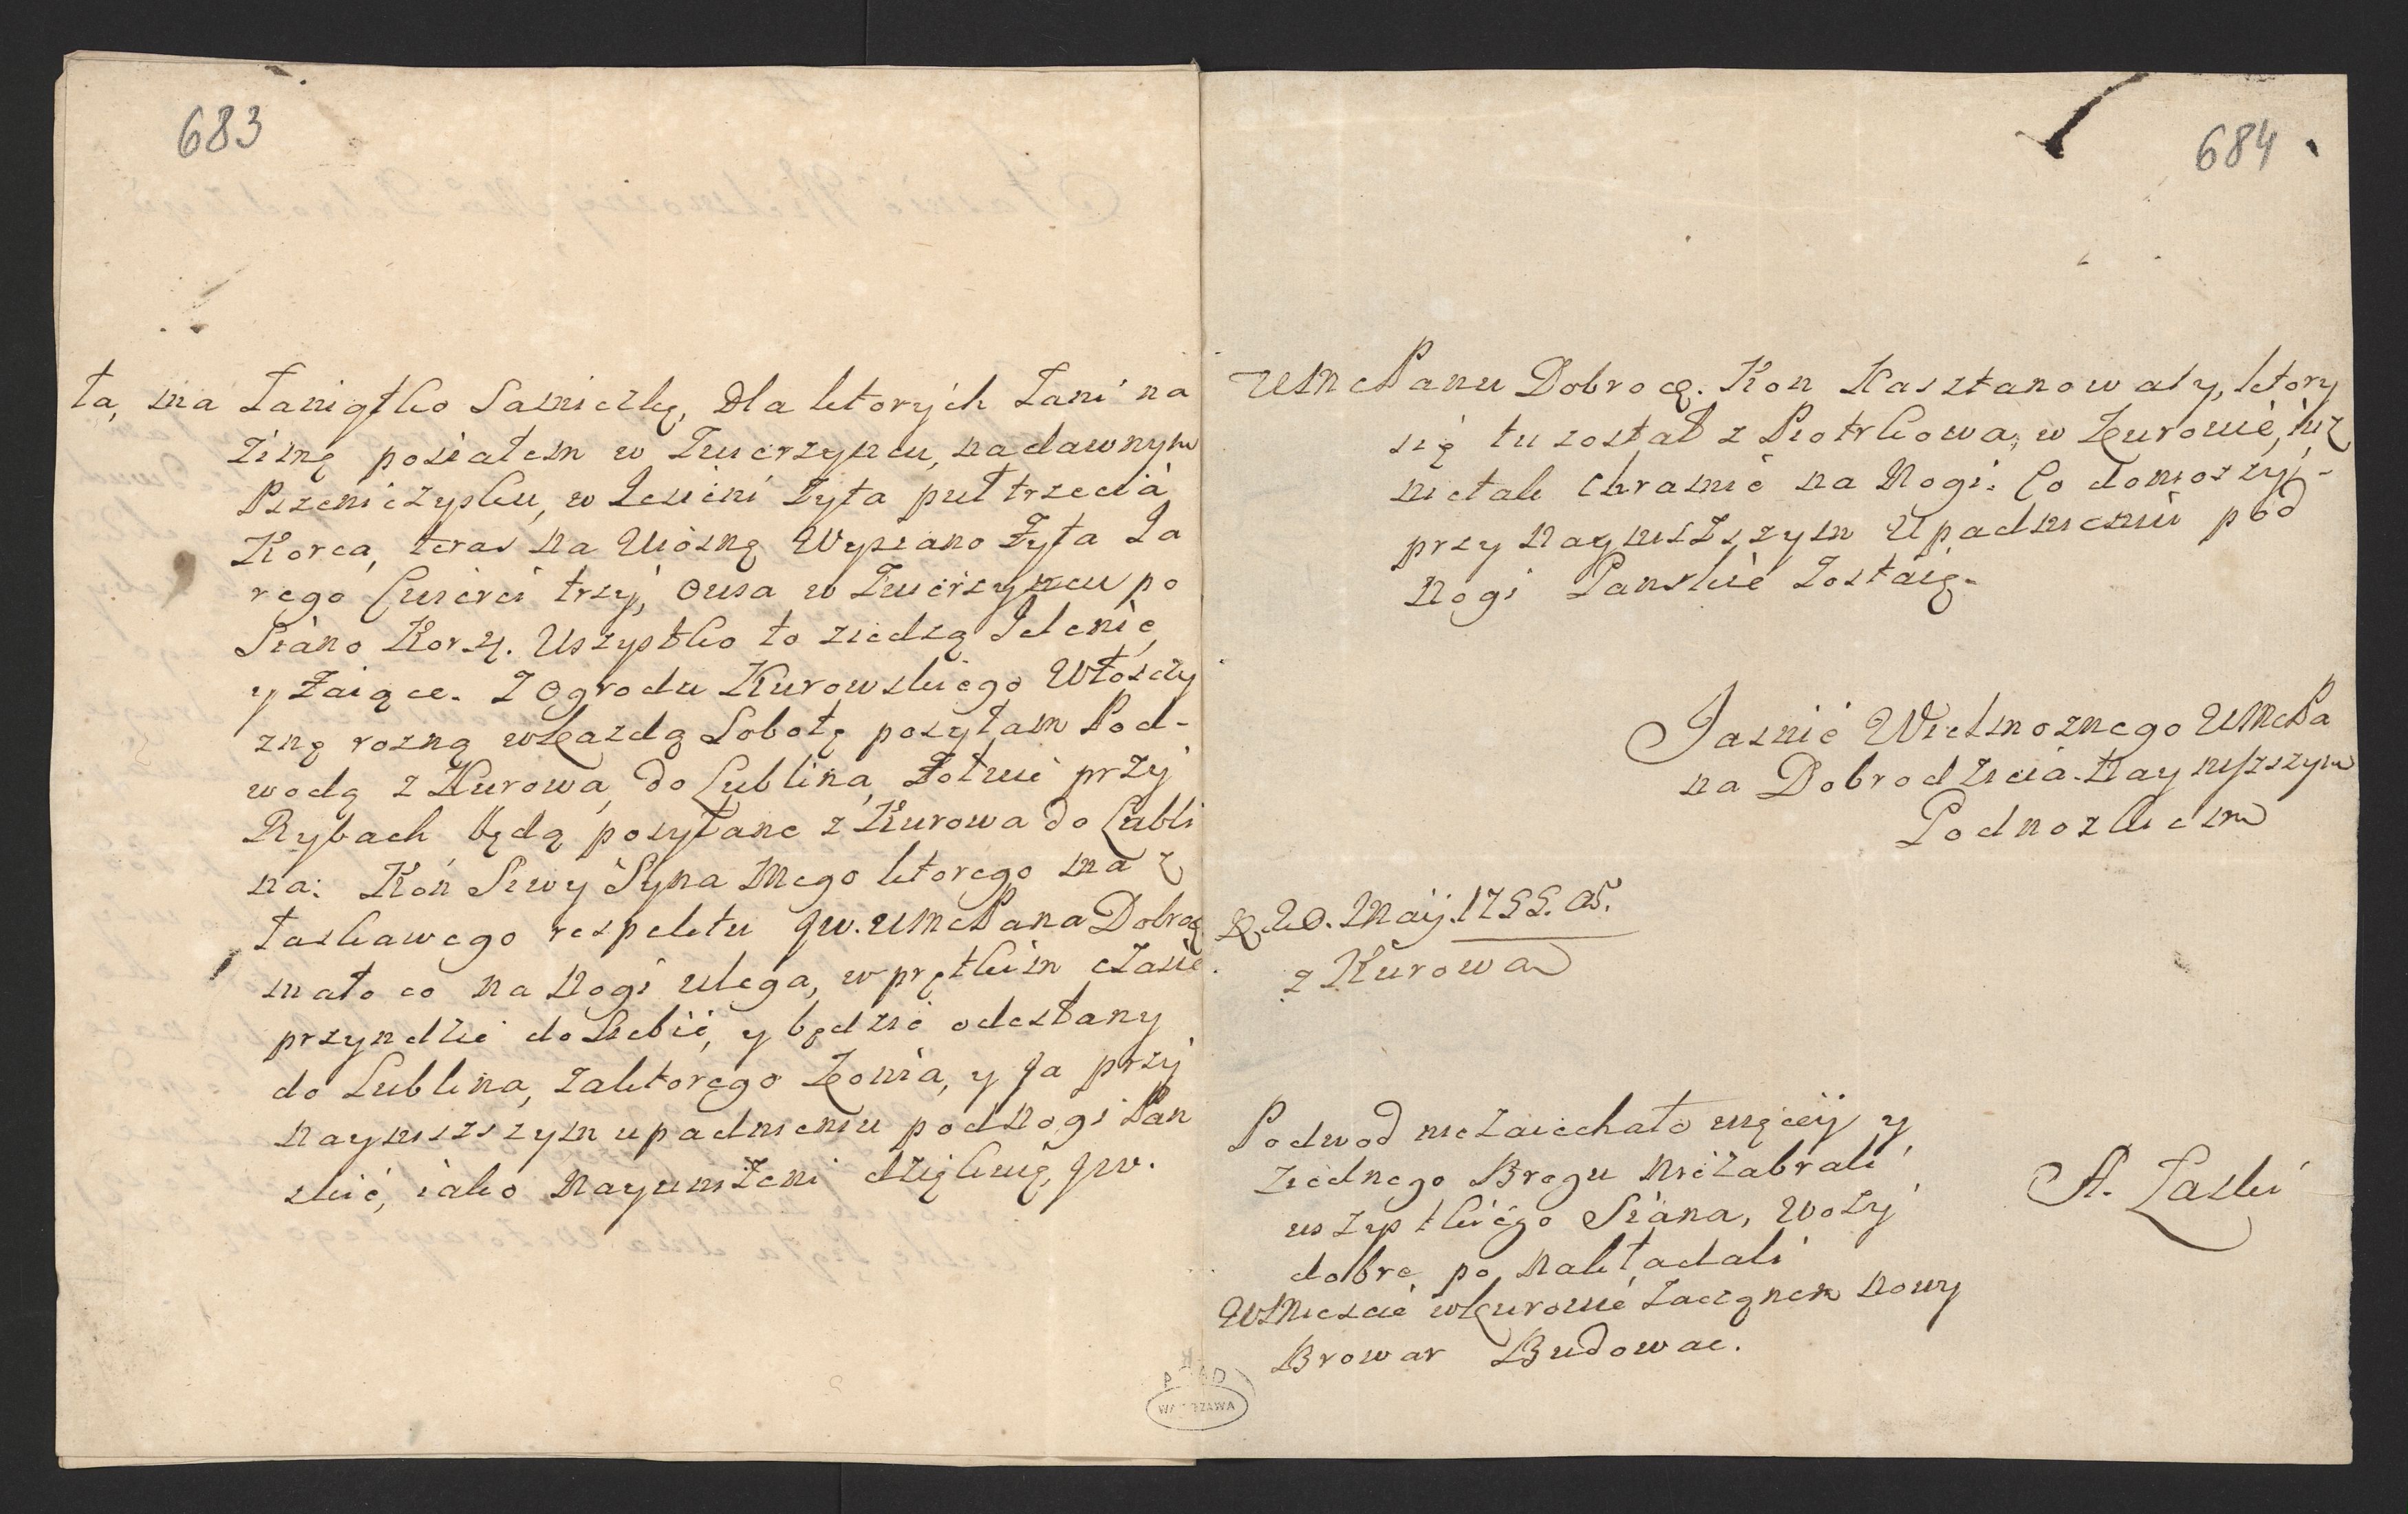 683
ta, ma Łaniątko Samiczkę, Dla ktorych Łani na
Zimę posiałem w Zwierzyncu, na dawnym
Pszeniczysku, w Iesieni Zyta puł trzecia
Korca, teras na Wiosnę Wysiano Zyta Ia
rego Cwierci trzy, Owsa w Zwierzyncu po
Siano Korzy. Wszystko to ziedzą Ielenie,
y Zaiące. Z Ogrodu Kurowskiego Włosczy
znę rozną w każdą Sobotę posyłam Pod-
wodą z Kurowa, do Lublina, Zołwie przy
Rybach będą posyłane z Kurowa do Lubli
na: Koń Siwy Syna Mego ktorego ma z
łaskawego respektu JW. WMcPana Dobrog
mało co na Nogi ulega, w prętkim czasie
przyndzie do Siebie, y będzie odesłany
do Lublina, za ktorego Konia, y Ja przy
Nayniszszym upadnieniu pod Nogi Pan
skie, iako Nayuniżeni dziękuię, JW.
684
WMcPanu Dobrocą. Kon Kasztanowaty, ktory
się tu został z Piotrkowa, w Kurowie, iuz
nie tak chramie na Nogi. Co doniozszy-
przy Nayniszszym Upadnieniu pod
Nogi Panskie Zostaię.
Jasnie Wielmoznego WMcPa
na Dobrodzieia Nayniszszym
Podnozkiem
D. 20. Maij. 1755. Ao.
z Kurowa
Podwod nie zaiechało więcy y
z iednego Brogu Nie Zabrali
wszystkiego Siana, Wozy
dobre po Nakładali
W Miescie w Kurowie Zacząnem Nowy
Browar Budowac.
A. Łaski
AGAD
WARSZAWA